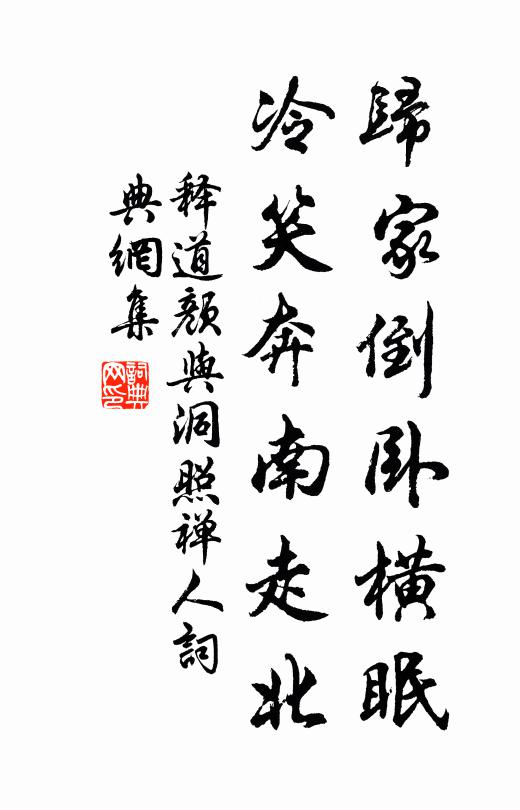 歸家倒卧橫眠
冷笑奔南走北
释道颜與洞照禅人詞
典網集
詞典网印